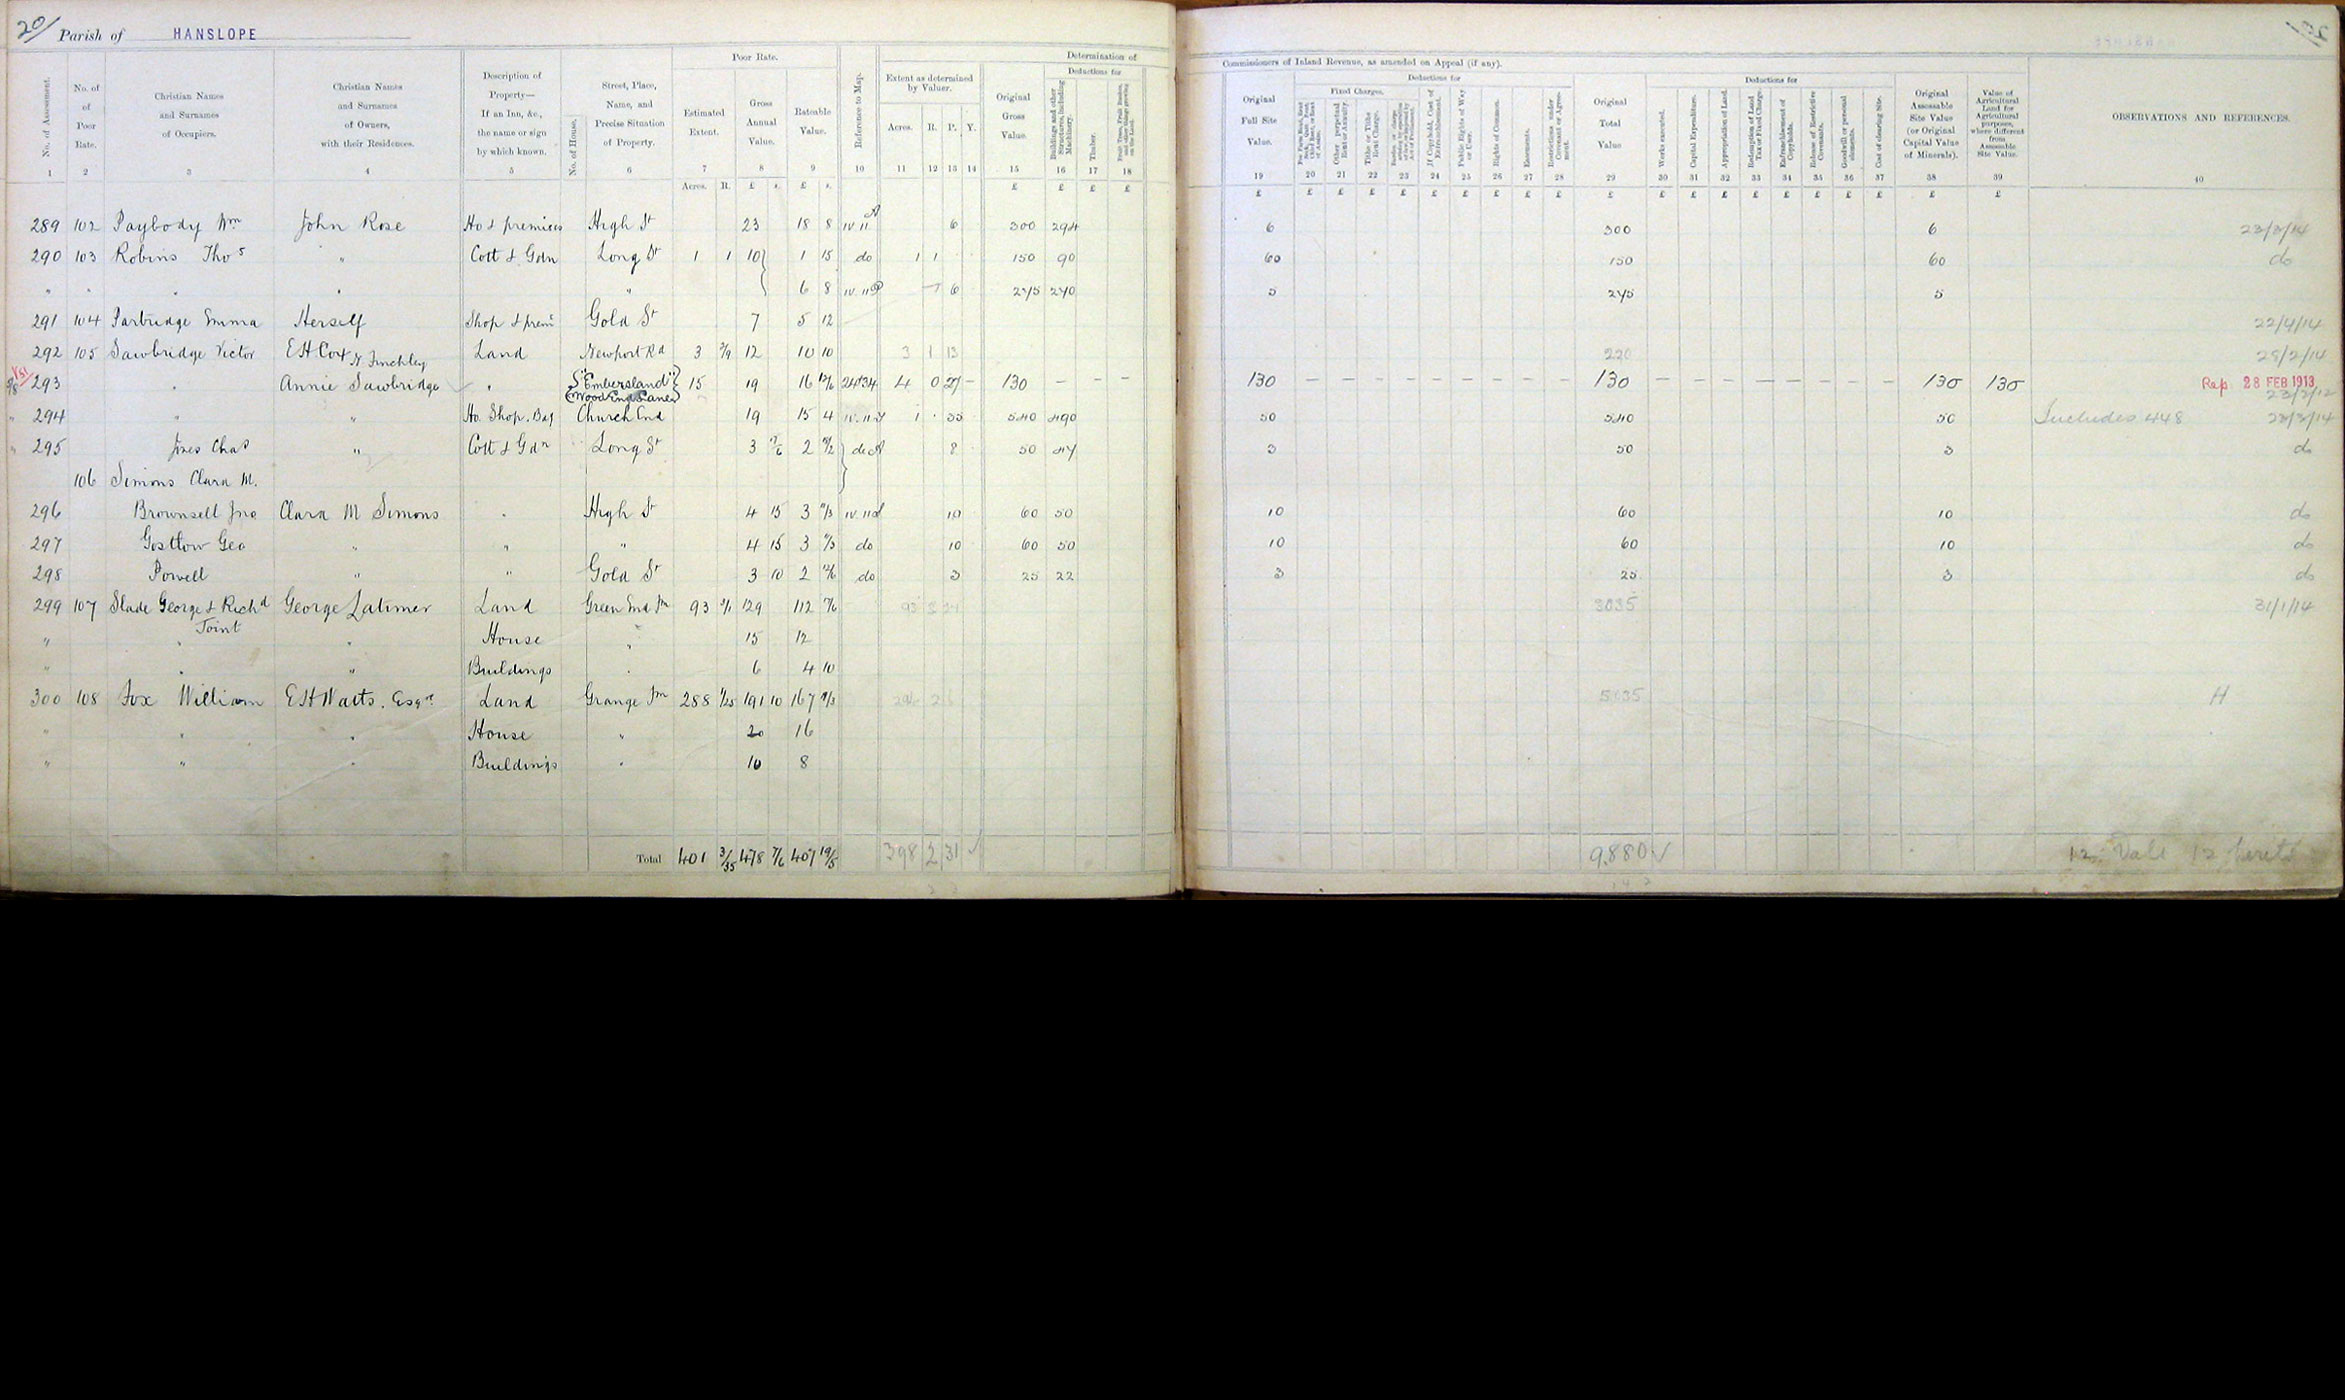 20/ Parish of HANSLOPE
Poor Rate. Determination of
Commissioners of Inland Revenue, as amended on Appeal (if any).
No. of Assessment. No. of Poor Rate. Christian Names and Surnames of Occupiers. Christian Names and Surnames of Owners, with their Residences. Description of Property— If an Inn, &c., the name or sign by which known. No. of House. Street, Place, Name, and Precise Situation of Property. Estimated Extent. Gross Annual Value. Rateable Value. Reference to Map. Extent as determined by Valuer. Acres. R. P. Y. Original Gross Value. Deductions for Buildings and other Structures, including Machinery. Timber. Fruit Trees, Fruit Bushes, and other things growing on the Land.
Original Full Site Value. Deductions for Fixed Charges. Other perpetual Rent or Annuity. Tithe or Tithe Rent Charge. If Copyhold, Cost of Enfranchisement. Public Rights of Way or User. Rights of Common. Easements. Restrictions under Covenant or Agreement. Original Total Value Deductions for Works executed. Capital Expenditure. Appropriation of Land. Redemption of Land Tax or Fixed Charge. Enfranchisement of Copyholds. Release of Restrictive Covenants. Goodwill or personal elements. Cost of clearing Site. Original Assessable Site Value (or Original Capital Value of Minerals). Value of Agricultural Land for Agricultural purposes, where different from Assessable Site Value. OBSERVATIONS AND REFERENCES.
1 2 3 4 5 6 7 8 9 10 11 12 13 14 15 16 17 18 19 20 21 22 23 24 25 26 27 28 29 30 31 32 33 34 35 36 37 38 39 40
Acres. R. £ s. £ s. £ £ £ £ £ £ £ £ £ £ £ £ £ £ £ £ £ £ £ £ £ £ £ £ £
289 102 Paybody Wm John Rose Ho & premises High St 23 18 8 IV 11 A 6 300 294 6 300 6 23/3/14
290 103 Robins Thos " Cott & Gdn Long St 1 1 10 1 15 do 1 1 150 90 60 150 60 do
" " " " " 6 8 IV. 11 6 275 270 5 275 5
291 104 Partridge Emma Herself Shop & prem Gold St 7 5 12 22/4/14
292 105 Sawbridge Victor E H Cox N Finchley Land Newport Rd 3 12 10 10 3 1 13 220 28/2/14
293 " Annie Sawbridge " "Embersland" Wood End Lane 15 19 16 24+34 4 0 27 - 130 - - - 130 - - - - - - - - - 130 - - - - - - - - 130 130 Rep 28 FEB 1913
294 " " Ho. Shop. Church End 19 15 4 1 . 33 540 490 50 540 50 Includes 448 23/3/14
295 Jones Chas " Cott & Gdn Long St 3 2 do A 8 50 47 3 50 3 do
106 Simons Clara M.
296 Brownsell Jno Clara M Simons " High St 4 15 3 10 60 50 10 60 10 do
297 Gostlow Geo " " " 4 15 3 do 10 60 50 10 60 10 do
298 Powell " " Gold St 3 10 2 do 3 25 22 3 25 3 do
299 107 Slade George & Richd George Latimer Land Green End Fm 93 129 112 93 3035 31/1/14
Joint
" " " House " 15 12
" " " Buildings " 6 4 10
300 108 Fox William E H Watts. Esqre Land Grange Fm 288 1/25 191 10 167 5035 H
" " " House " 20 16
" " " Buildings " 10 8
Total 401 3/35 478 7/6 407 19/5 398 2 31 ✓ 9,880 ✓ 12 Vals 12 herits